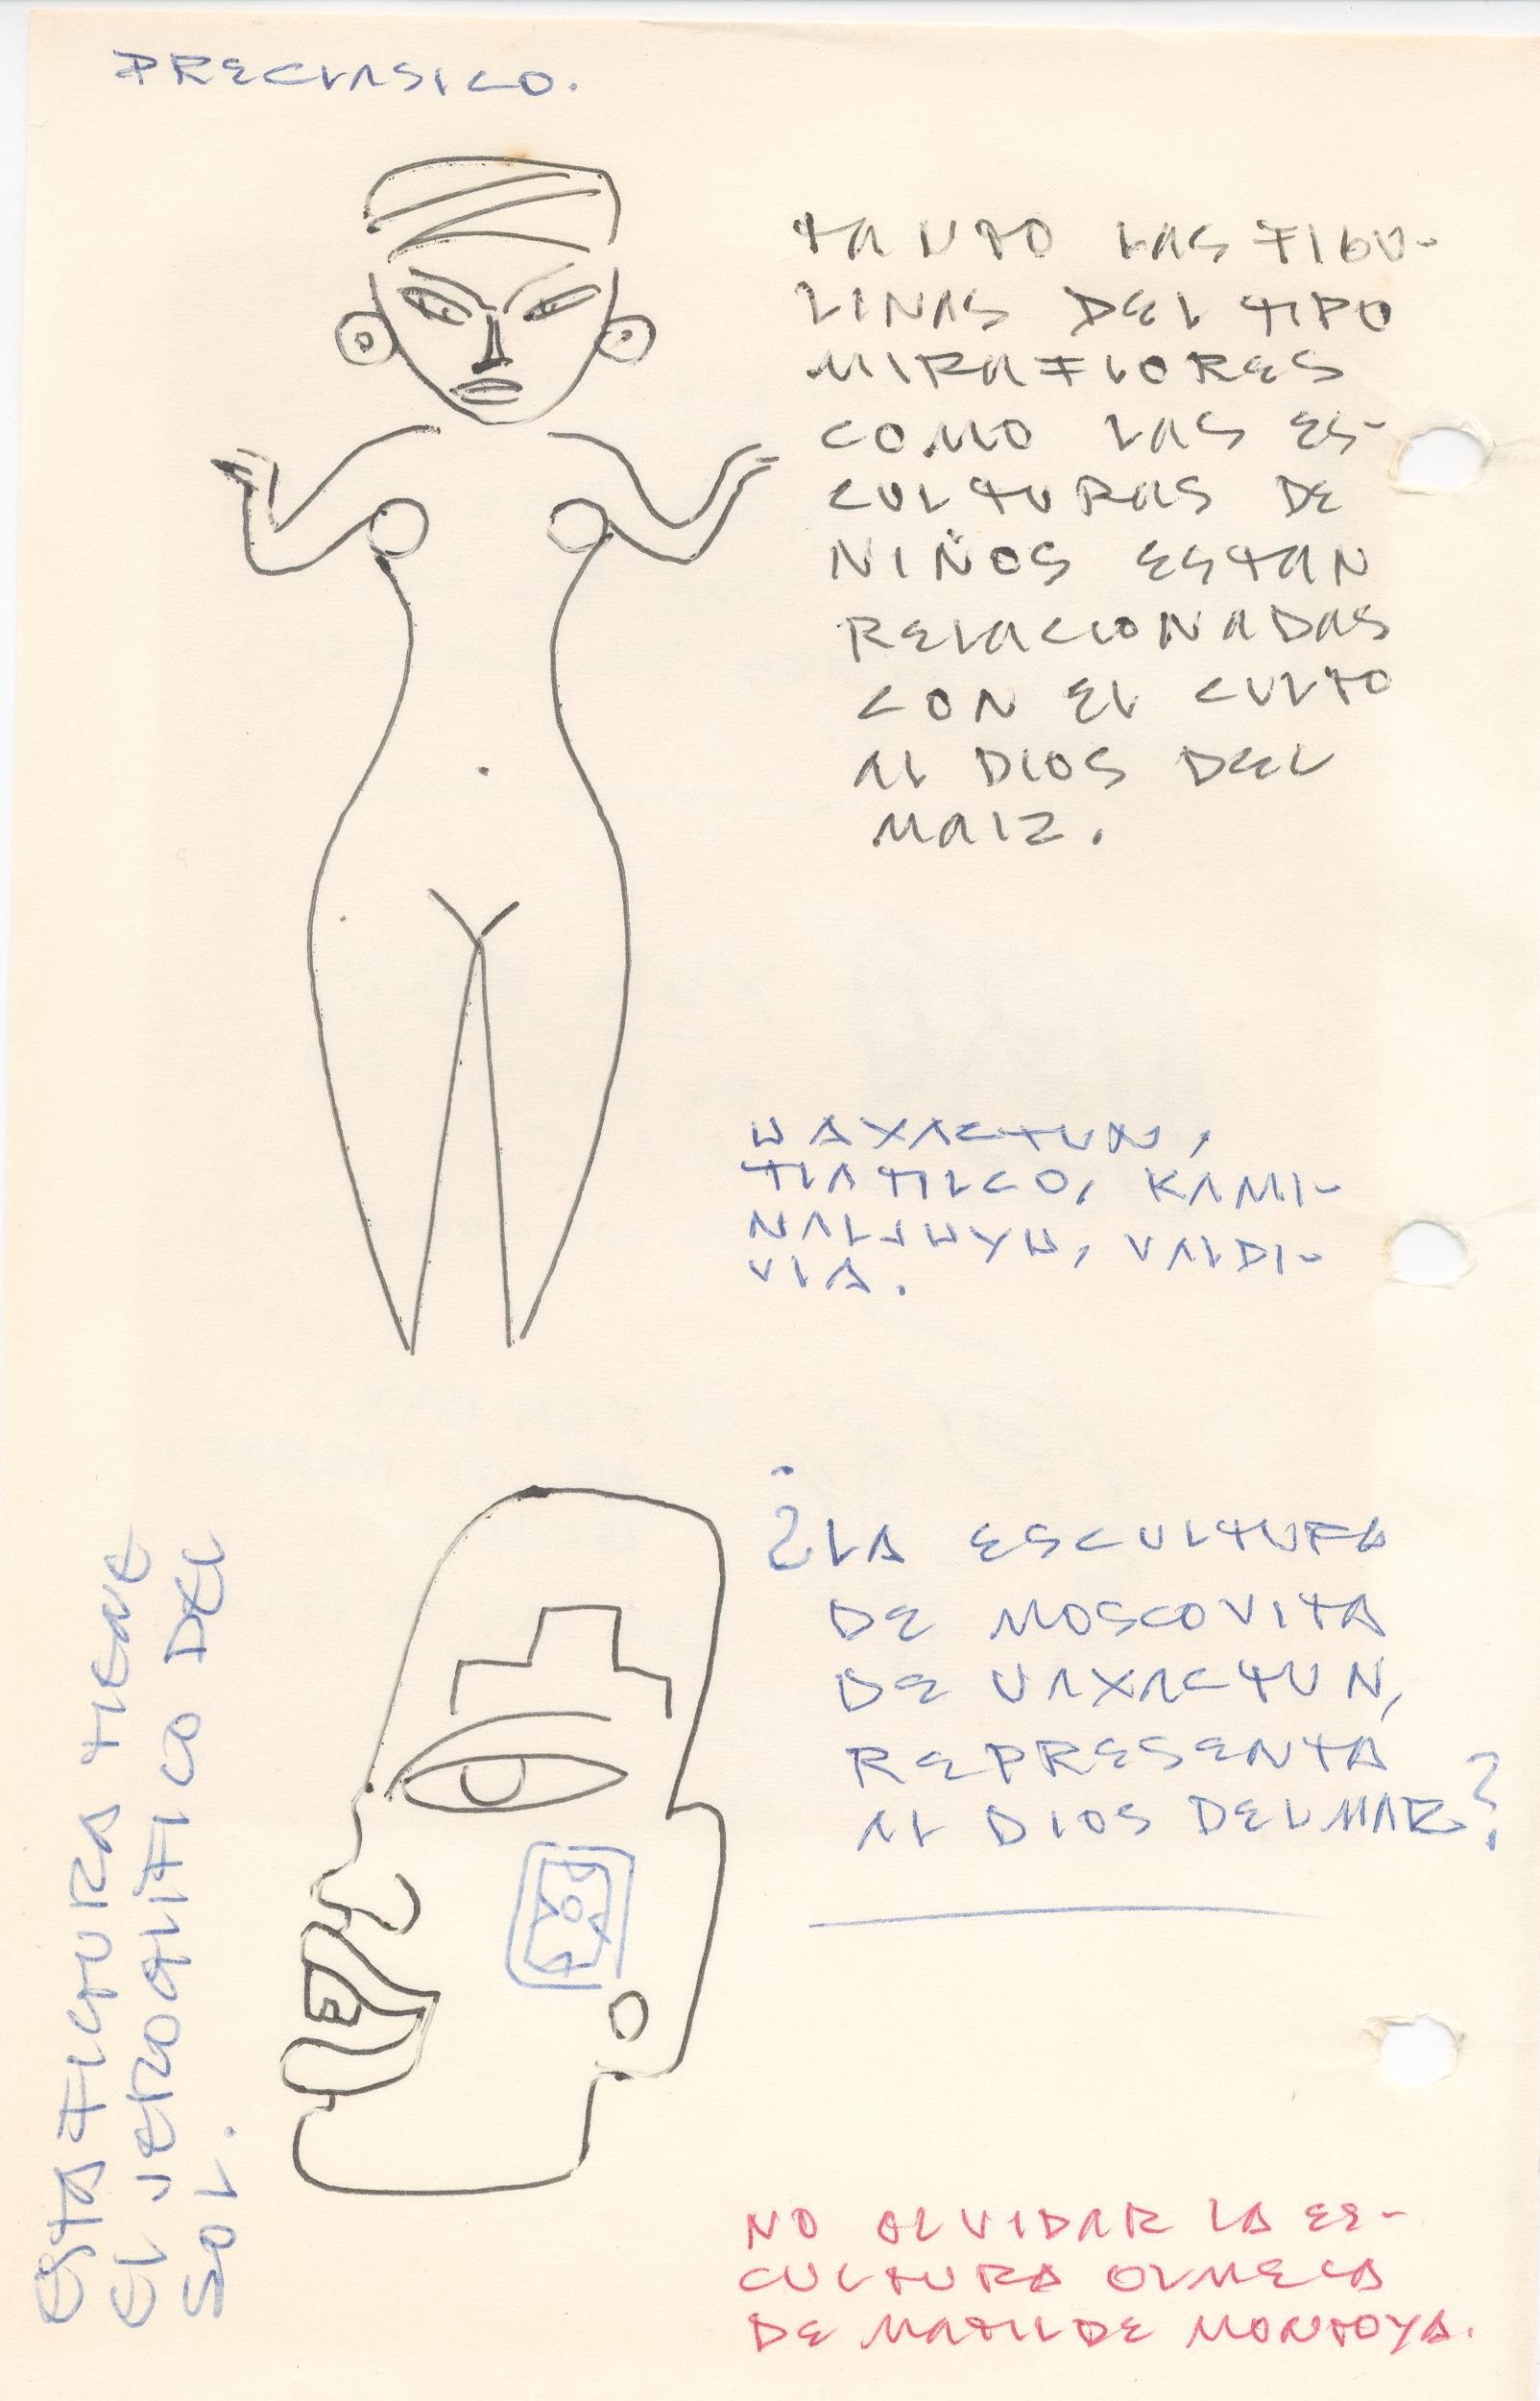 PRECLASICO.
TANTO LAS FIGU-
LINAS DEL TIPO
MIRAFLORES
COMO LAS ES-
CULTURAS DE
NIÑOS ESTAN
RELACIONADAS
CON EL CULTO
AL DIOS DEL
MAIZ.
UAXACTUN,
TLATILCO, KAMI-
NALJUYU, VALDI-
VIA.
¿LA ESCULTURA
DE MOSCOVITA
DE UAXACTUN,
REPRESENTA
AL DIOS DEL MAR?
ESTA FIGURA TIENE
EL JEROGLIFICO DEL
SOL.
NO OLVIDAR LA ES-
CULTURA OLMECA
DE MATILDE MONTOYA.